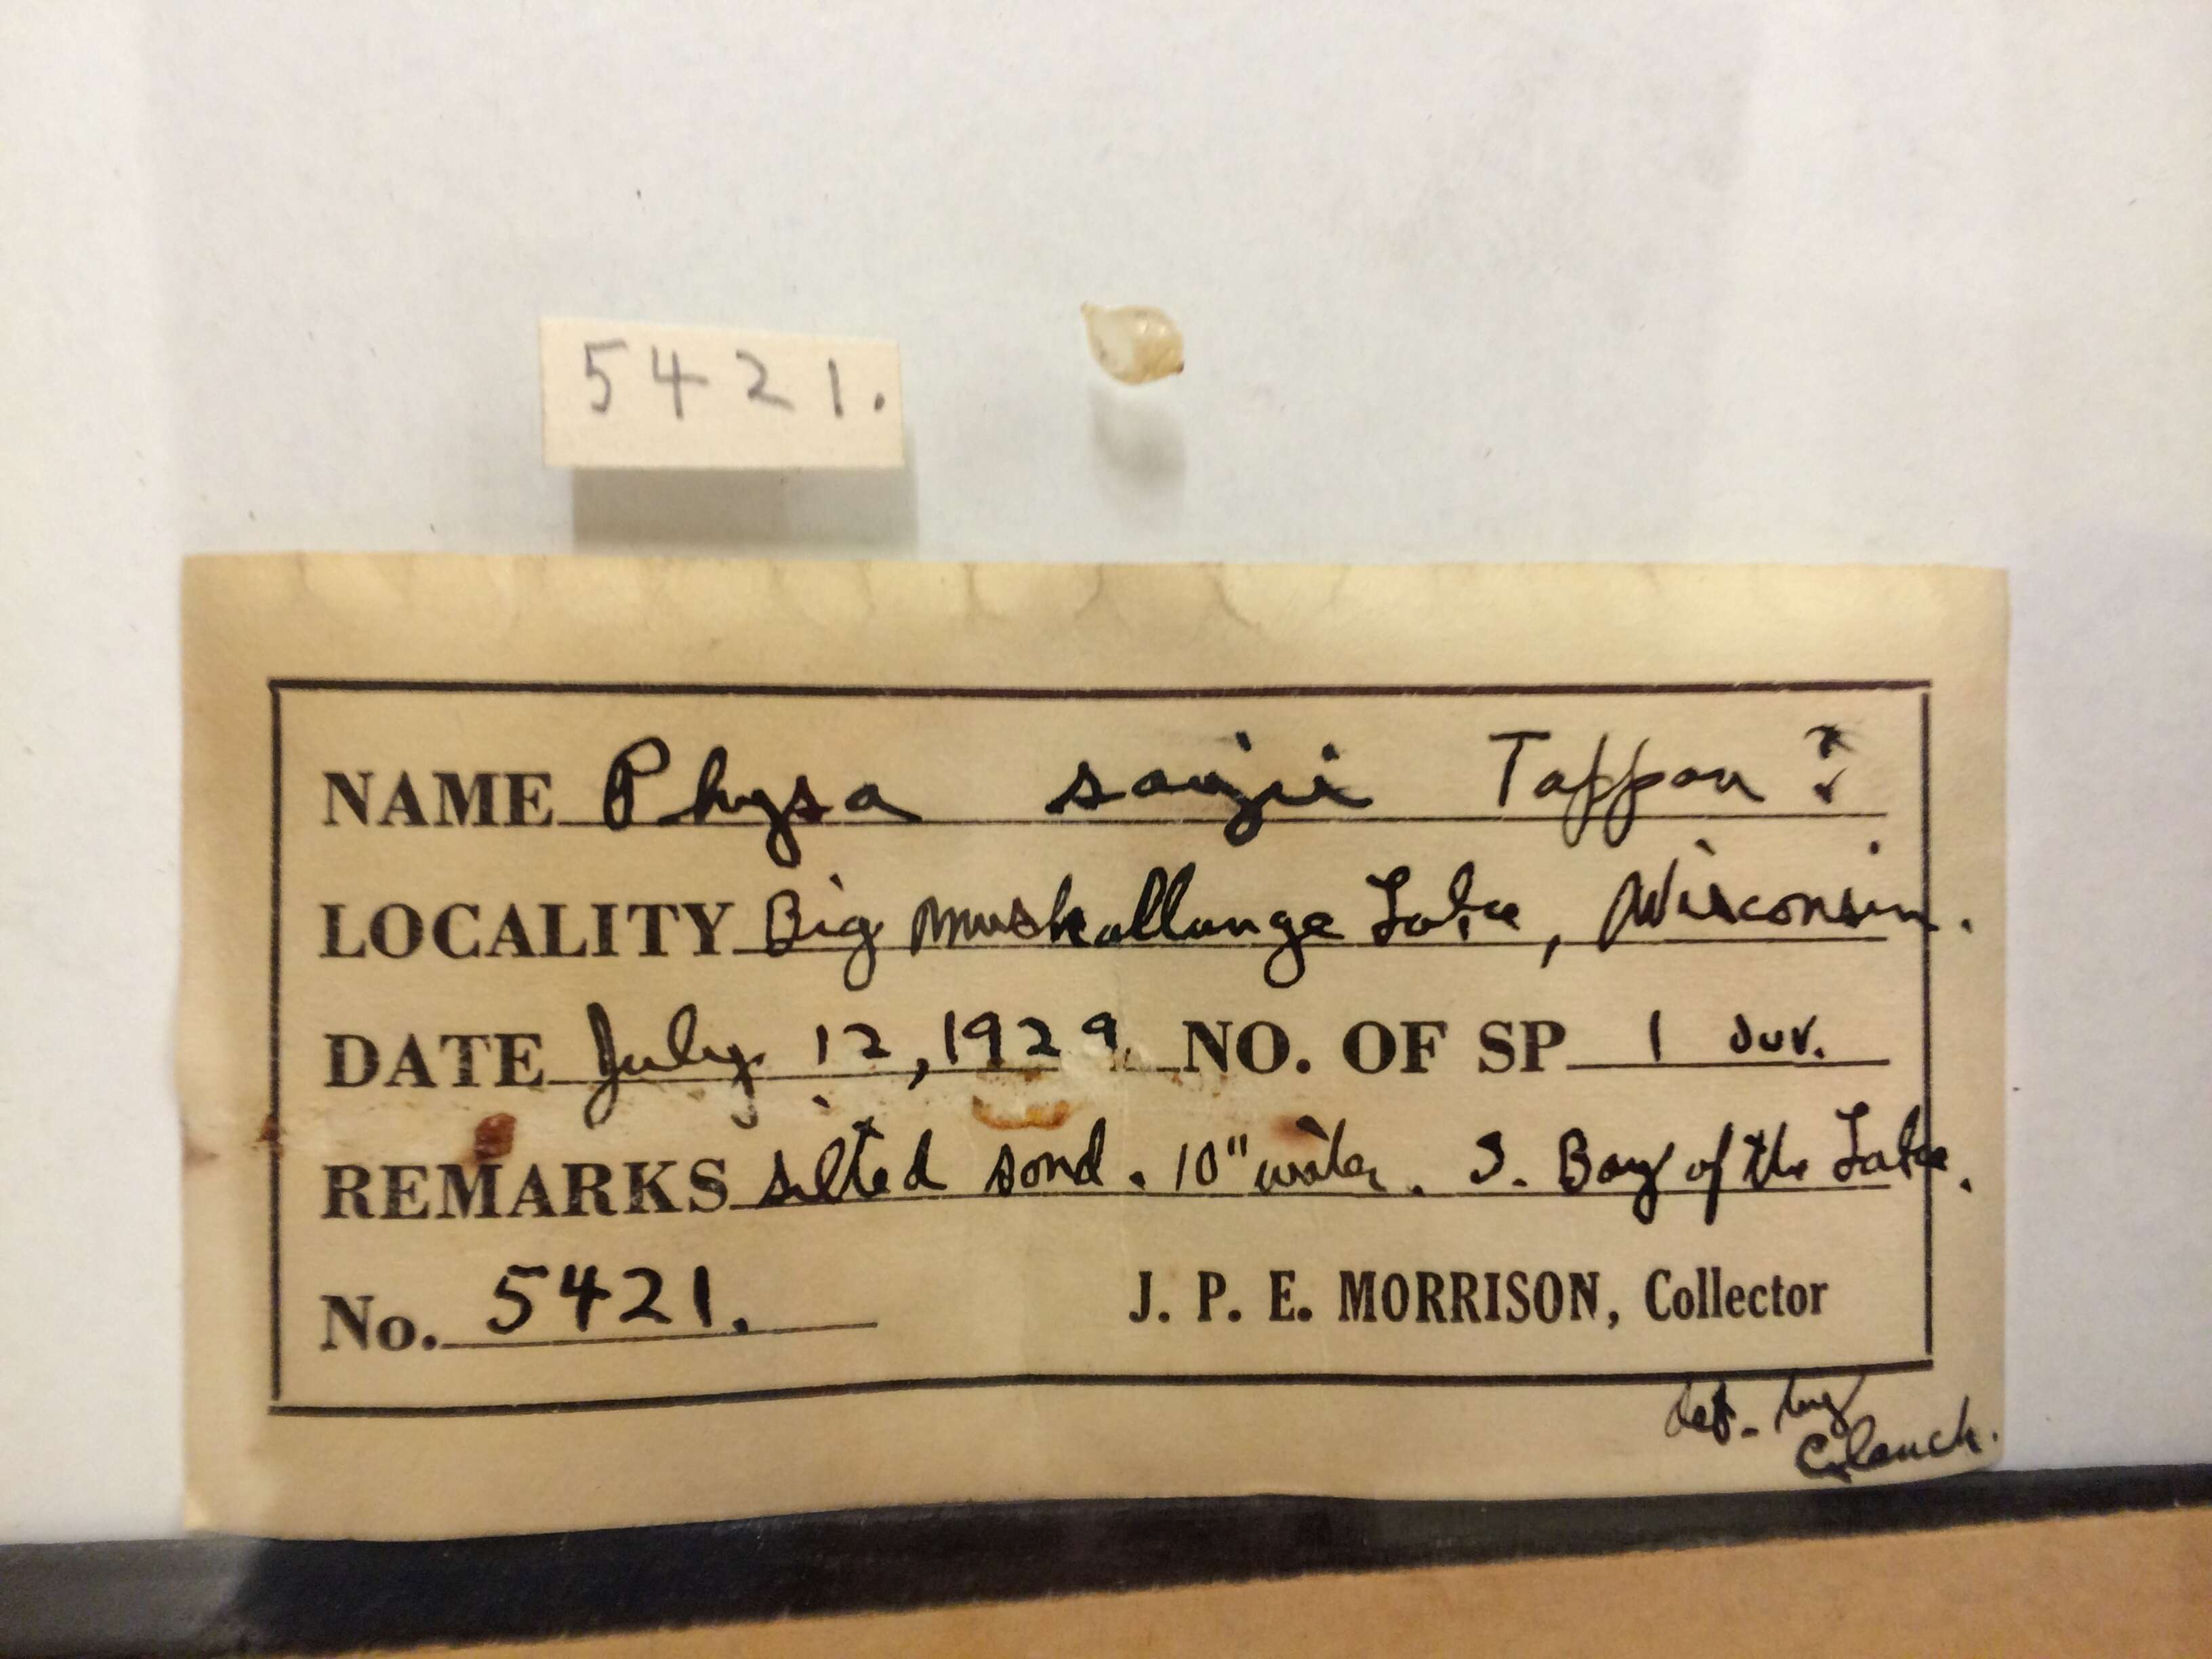 5421.
NAME Physa sayii Tappan ?
LOCALITY Big Muskallunge Lake, Wisconsin.
DATE July 12, 1929. NO. OF SP 1 Juv.
REMARKS silted sand. 10" water. S. Bay of the Lake.
No. 5421. J. P. E. MORRISON, Collector
det. by
Clench.